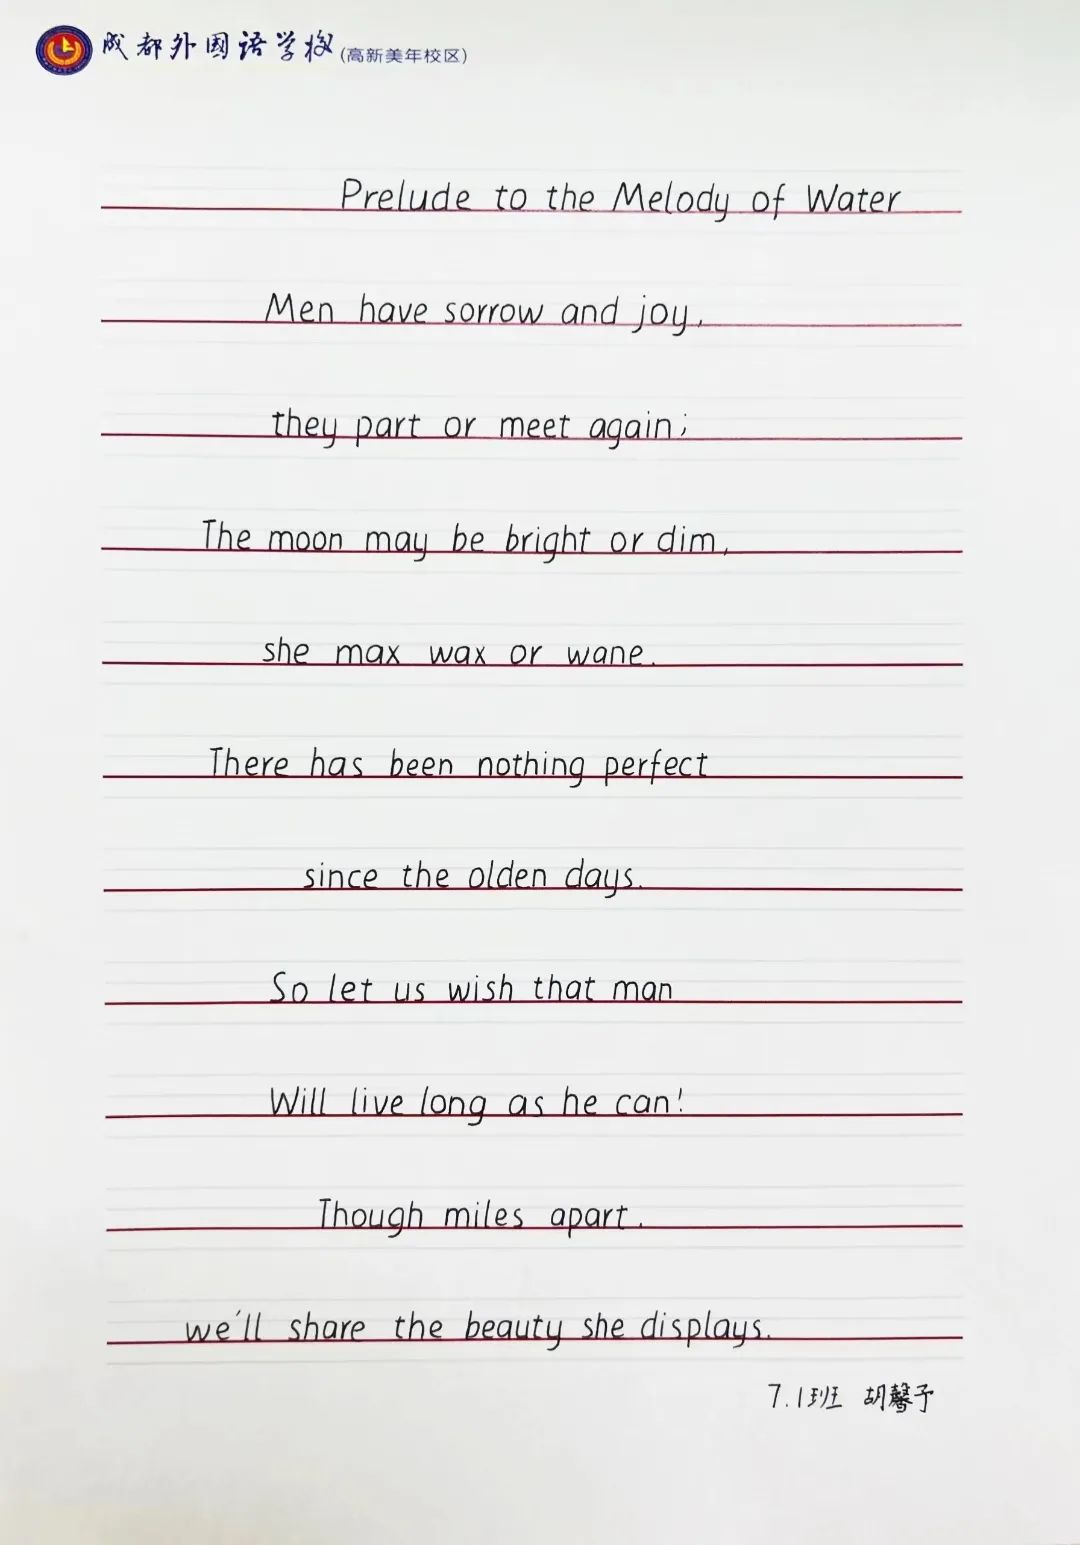 成都外国语学校(高新美年校区)
Prelude to the Melody of Water
Men have sorrow and joy,
they part or meet again;
The moon may be bright or dim,
she max wax or wane.
There has been nothing perfect
since the olden days.
So let us wish that man
Will live long as he can!
Though miles apart.
we'll share the beauty she displays.
7.1班 胡馨予